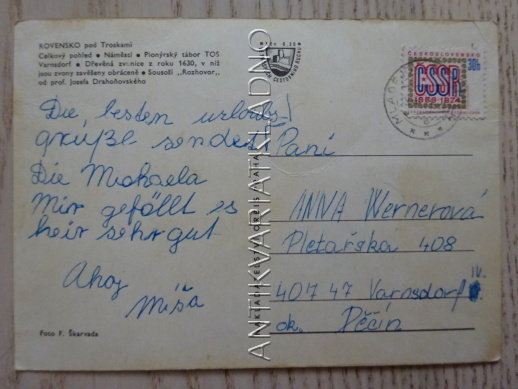 ROVENSKO pod Troskami
Celkový pohled • Náměstí • Pionýrský tábor TOS
Varnsdorf • Dřevěná zvonice z roku 1630, v níž
jsou zvony zavěšeny obráceně • Sousoší „Rozhovor"
od prof. Josefa Drahoňovského
Die besten urlaubs!
grüße sendet
Die Michaela
Mir gefällt es
heir sehr gut
Ahoj
Míša
Foto F. Škarvada
ANTIKVARIAT KLADNO
ČESKOSLOVENSKO
30h
ČSSR
1969-1974
Paní
ANNA Wernerová
Pletařska 408
IV.
407 47 Varnsdorf
ok. Děčín